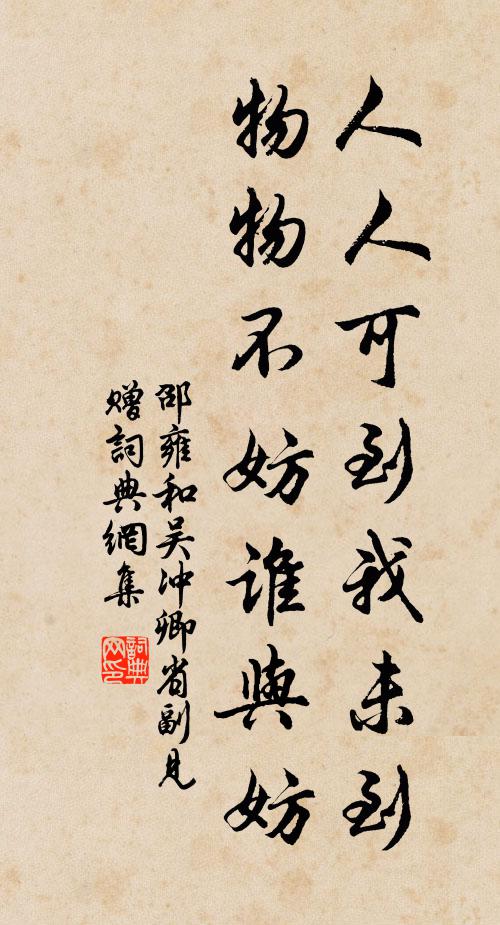 人人可到我未到
物物不妨誰與妨
邵雍和吴冲卿省副見
贈詞典網集
詞典
网印